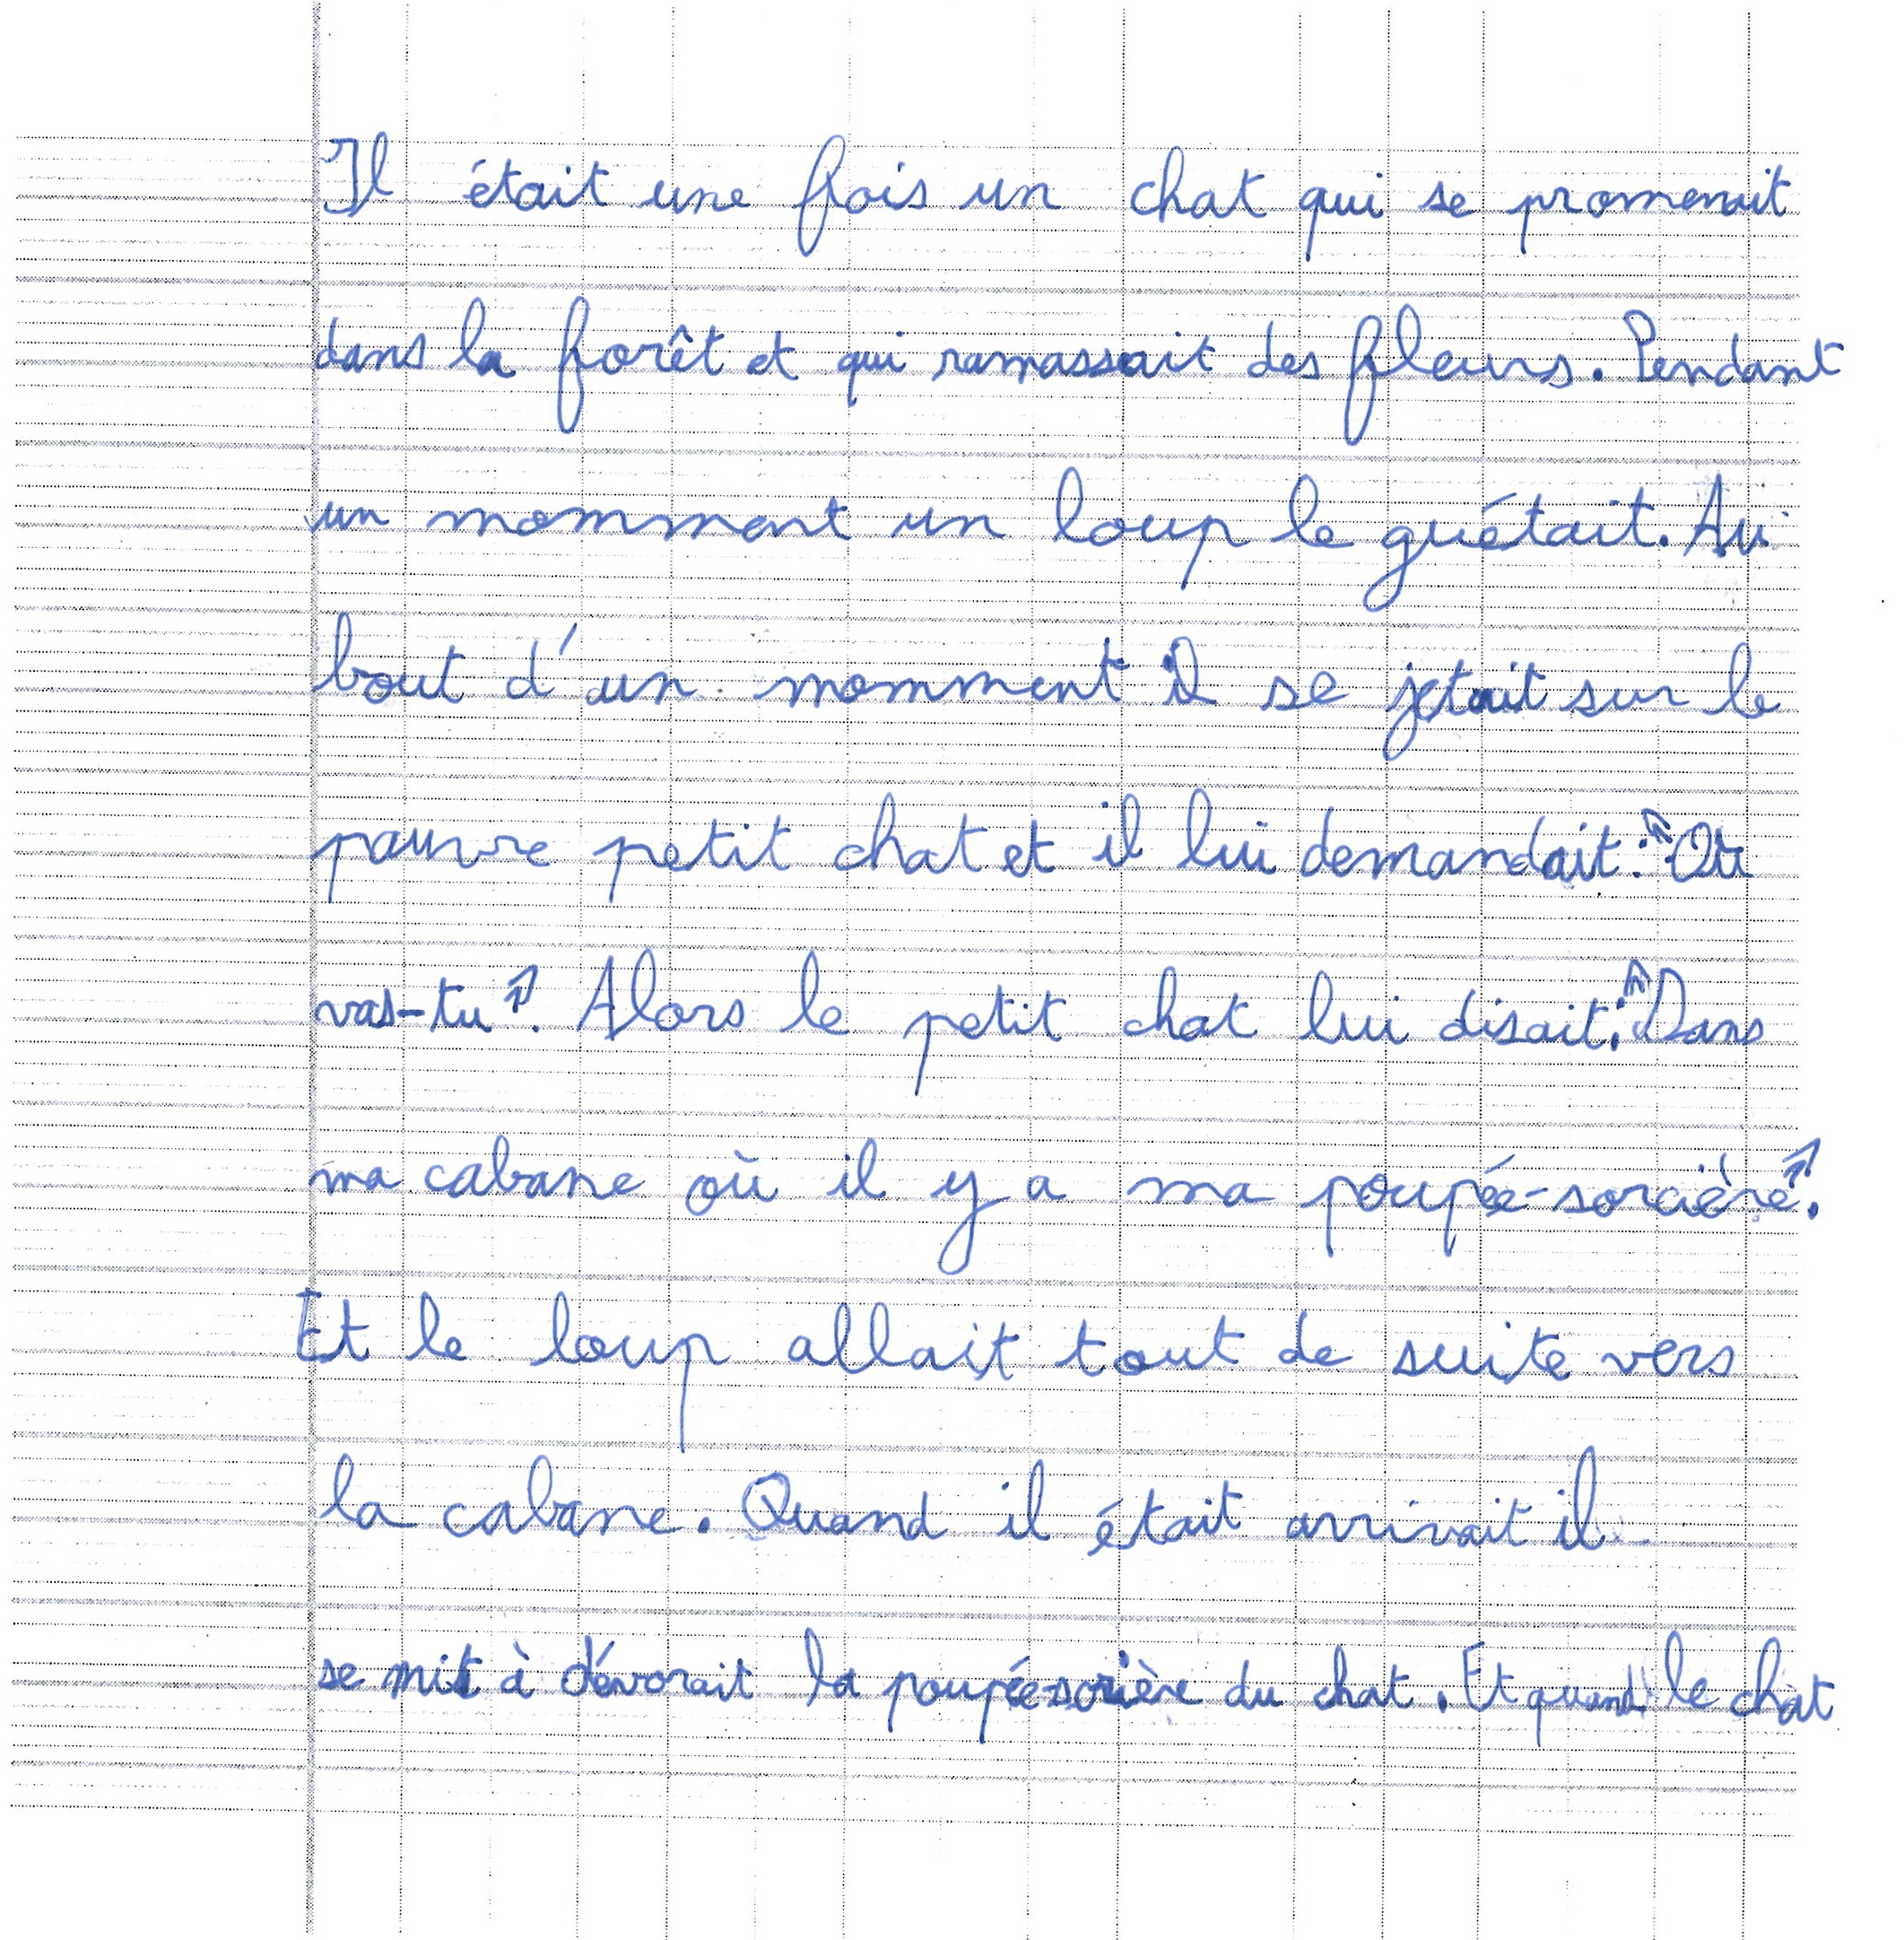 Il était une fois un chat qui se promenait
dans la forêt et qui ramassait des fleurs. Pendant
un momment un loup le guétait. Au
bout d'un momment il se jetait sur le
pauvre petit chat et il lui demandait : "Où
vas-tu ?" Alors le petit chat lui disait : "Dans
ma cabane où il y a ma poupée-sorcière".
Et le loup allait tout de suite vers
la cabane. Quand il était arrivait il
se mit à dévorait la poupée-sorière du chat. Et quand le chat